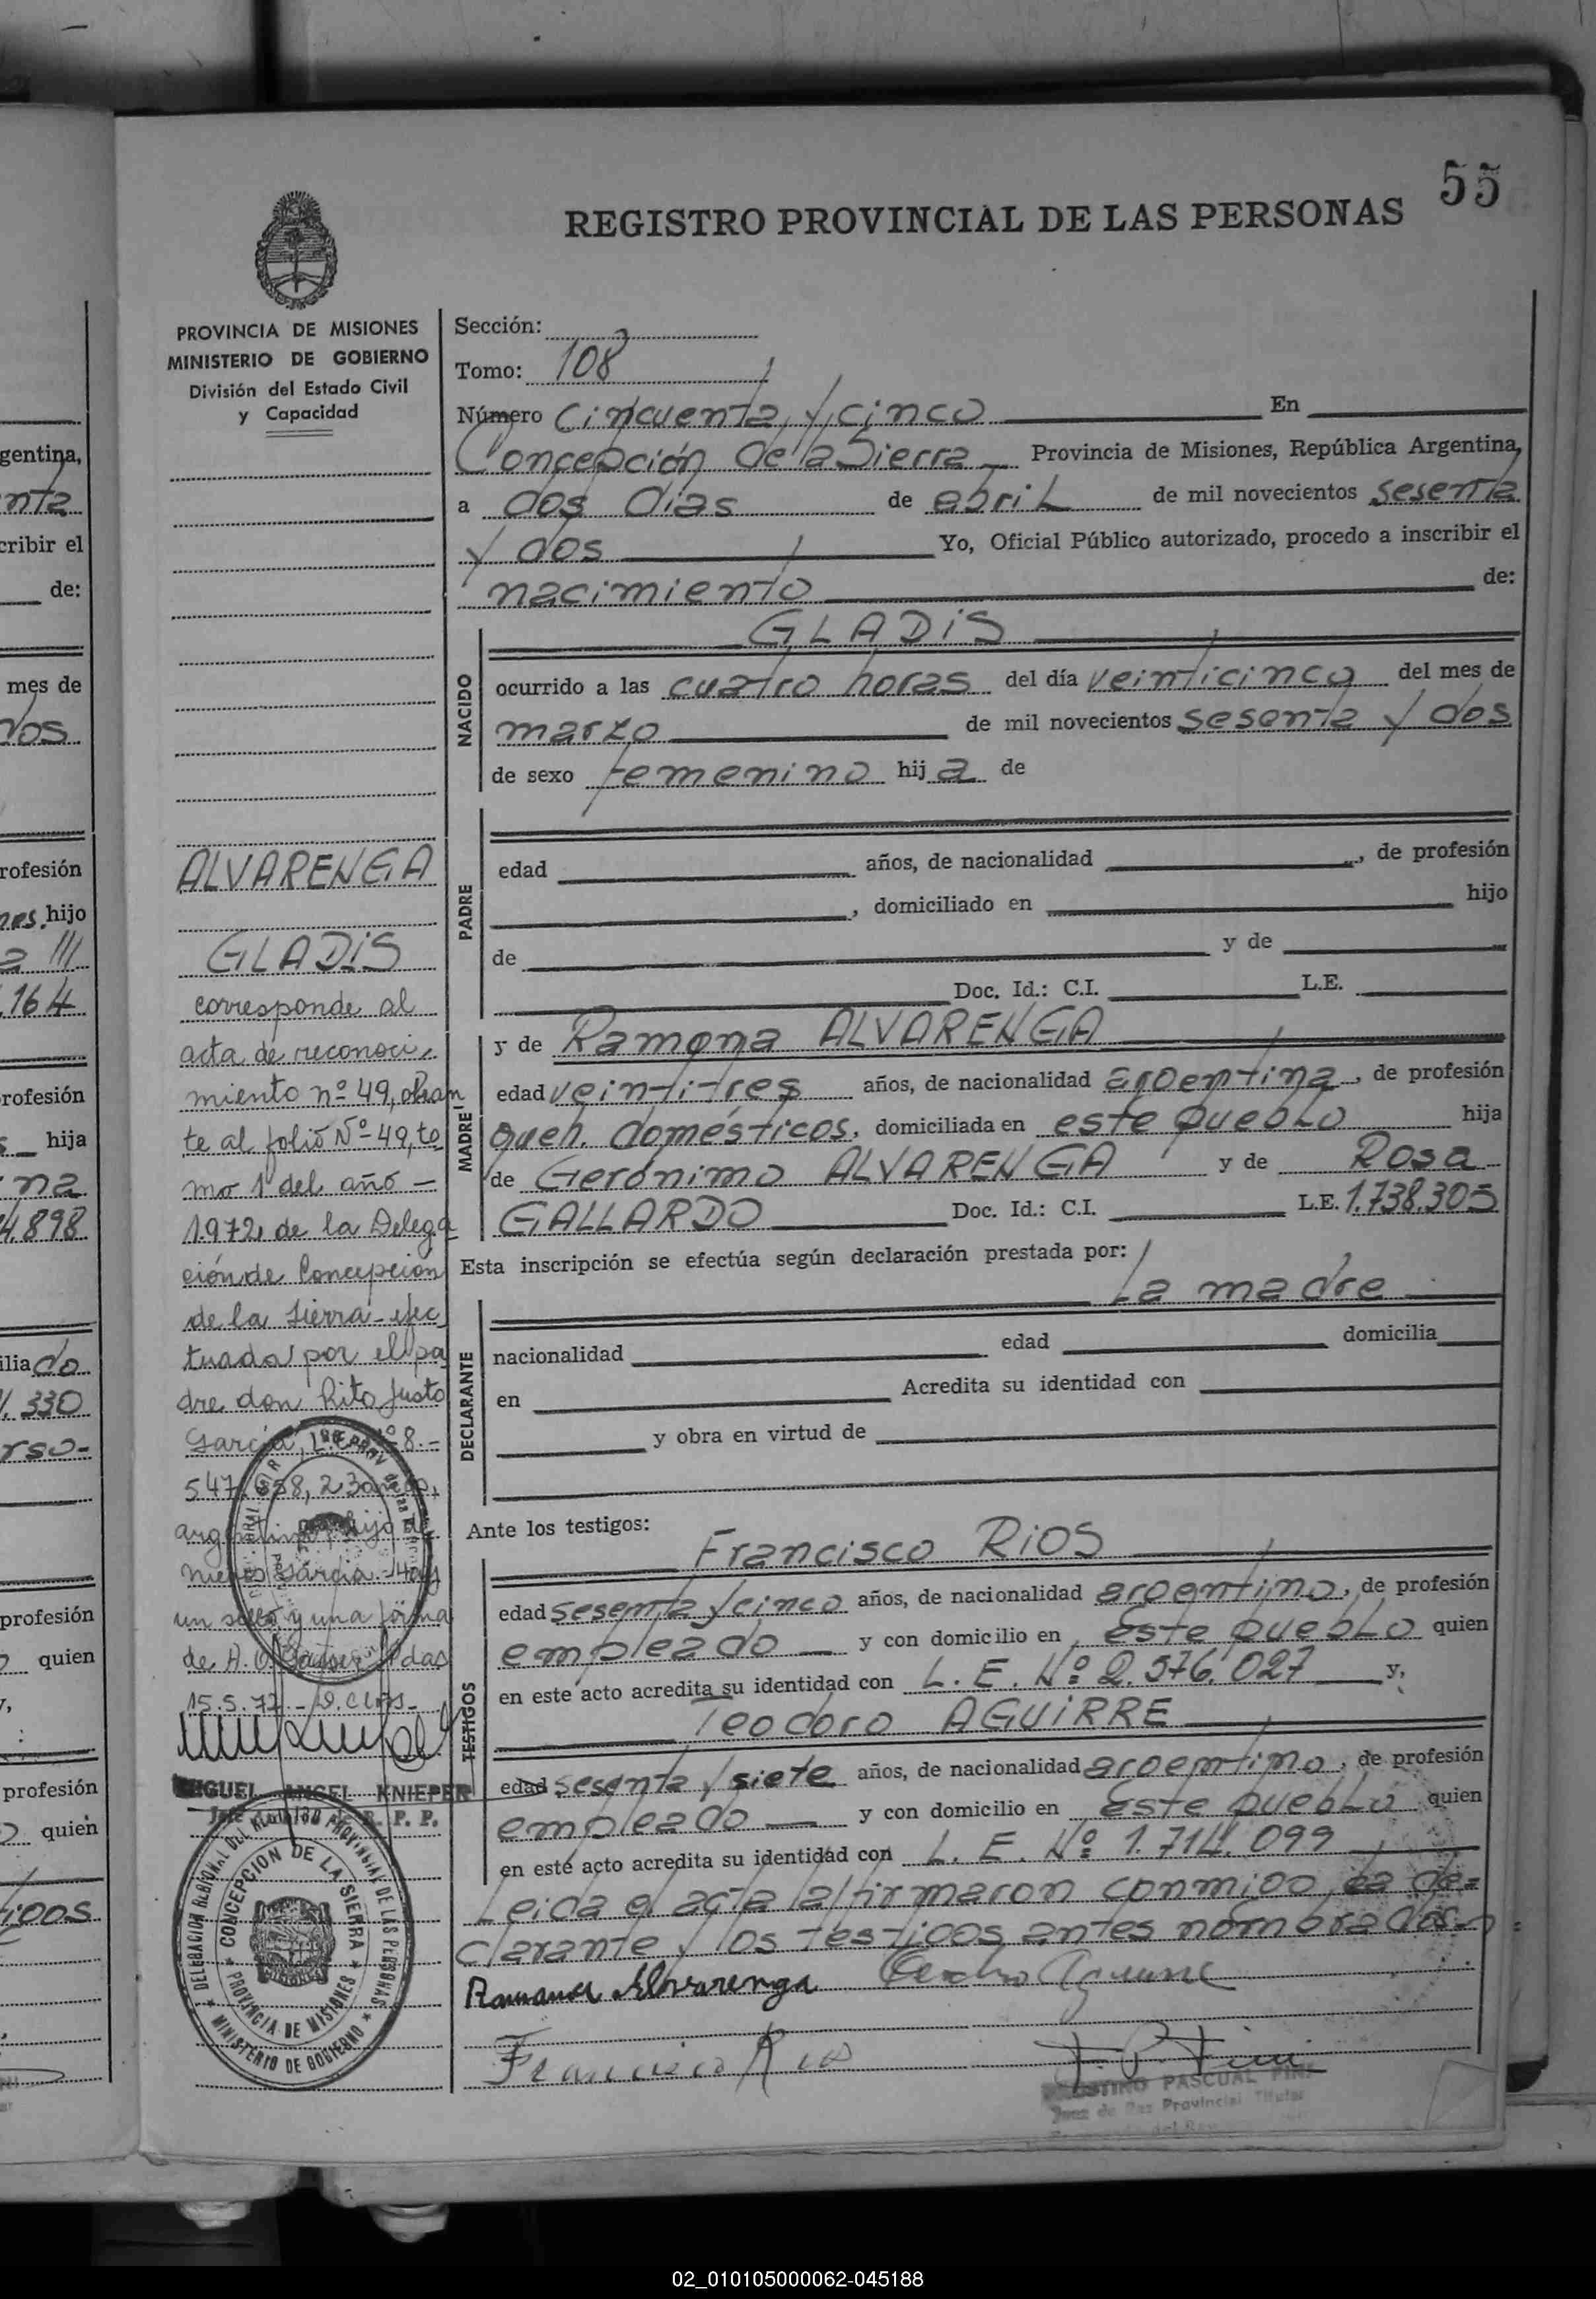 55
REGISTRO PROVINCIAL DE LAS PERSONAS
PROVINCIA DE MISIONES
MINISTERIO DE GOBIERNO
División del Estado Civil
y Capacidad
ALVARENGA
GLADIS
corresponde al
acta de reconoci-
miento nº 49, obran
te al folio Nº 49, to
mo 1 del año —
1.972, de la Delega
ción de Concepcion
de la Sierra - efec
tuada por el pa
dre don Rito Justo
García, L.E. Nº 8.-
547. 658, 23 años,
argentino, hijo de
Nieves García.- Hay
un sello y una firma
de A. O.
15.5.72.-
MIGUEL ANGEL KNIEPER
R. P. P.
DELEGACION REGIONAL DEL REGISTRO PROVINCIAL DE LAS PERSONAS
CONCEPCION DE LA SIERRA
PROVINCIA DE MISIONES
MINISTERIO DE GOBIERNO
Sección:
Tomo: 108
Número Cincuenta y cinco En
Concepción de la Sierra Provincia de Misiones, República Argentina,
a dos días de abril de mil novecientos sesenta
y dos Yo, Oficial Público autorizado, procedo a inscribir el
nacimiento de:
GLADIS
NACIDO
ocurrido a las cuatro horas del día veinticinco del mes de
marzo de mil novecientos sesenta y dos
de sexo femenino hija de
PADRE
edad años, de nacionalidad , de profesión
, domiciliado en hijo
de y de
Doc. Id.: C.I. L.E.
MADRE
y de Ramona ALVARENGA
edad veintitres años, de nacionalidad argentina, de profesión
queh. domésticos, domiciliada en este pueblo hija
de Gerónimo ALVARENGA y de Rosa
GALLARDO Doc. Id.: C.I. L.E. 1.738.305
Esta inscripción se efectúa según declaración prestada por:
La madre
DECLARANTE
nacionalidad edad domicilia
en Acredita su identidad con
y obra en virtud de
Ante los testigos:
Francisco RIOS
TESTIGOS
edad sesenta y cinco años, de nacionalidad argentino, de profesión
empleado y con domicilio en Este pueblo quien
en este acto acredita su identidad con L. E. Nº 2.576.027 y,
Teodoro AGUIRRE
edad sesenta y siete años, de nacionalidad argentino, de profesión
empleado y con domicilio en Este pueblo quien
en este acto acredita su identidad con L. E. Nº 1.714.099
Leida el acta la firmaron conmigo, la de=
clarante y los testigos antes nombrados.
Ramona Alvarenga Teodoro Aguirre
Francisco Rios
PASCUAL
Juez de Paz Provincial Titular
gentina,
nta
cribir el
de:
mes de
dos
rofesión
hijo
164
rofesión
hija
na
4.898
ilia do
330
profesión
quien
profesión
quien
02_010105000062-045188